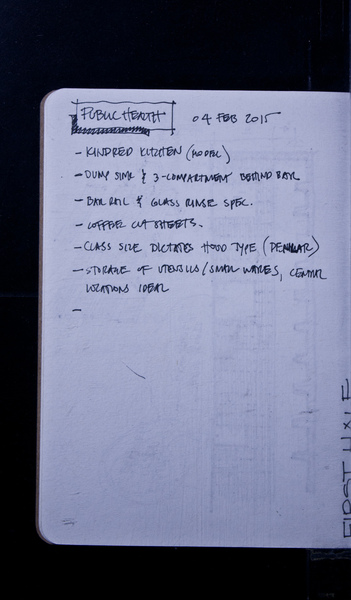 PUBLIC HEALTH 04 FEB 2015
- KINDRED KITCHEN (MODEL)
- DUMP SINK & 3-COMPARTMENT BEHIND BAR
- BAR RAIL & GLASS RINSE SPEC.
- COFFEE CUT SHEETS.
- CLASS SIZE DICTATES HOOD TYPE
- STORAGE OF UTENSILS/SMALL WARES, CENTRAL
LOCATIONS IDEAL
-
FIRST